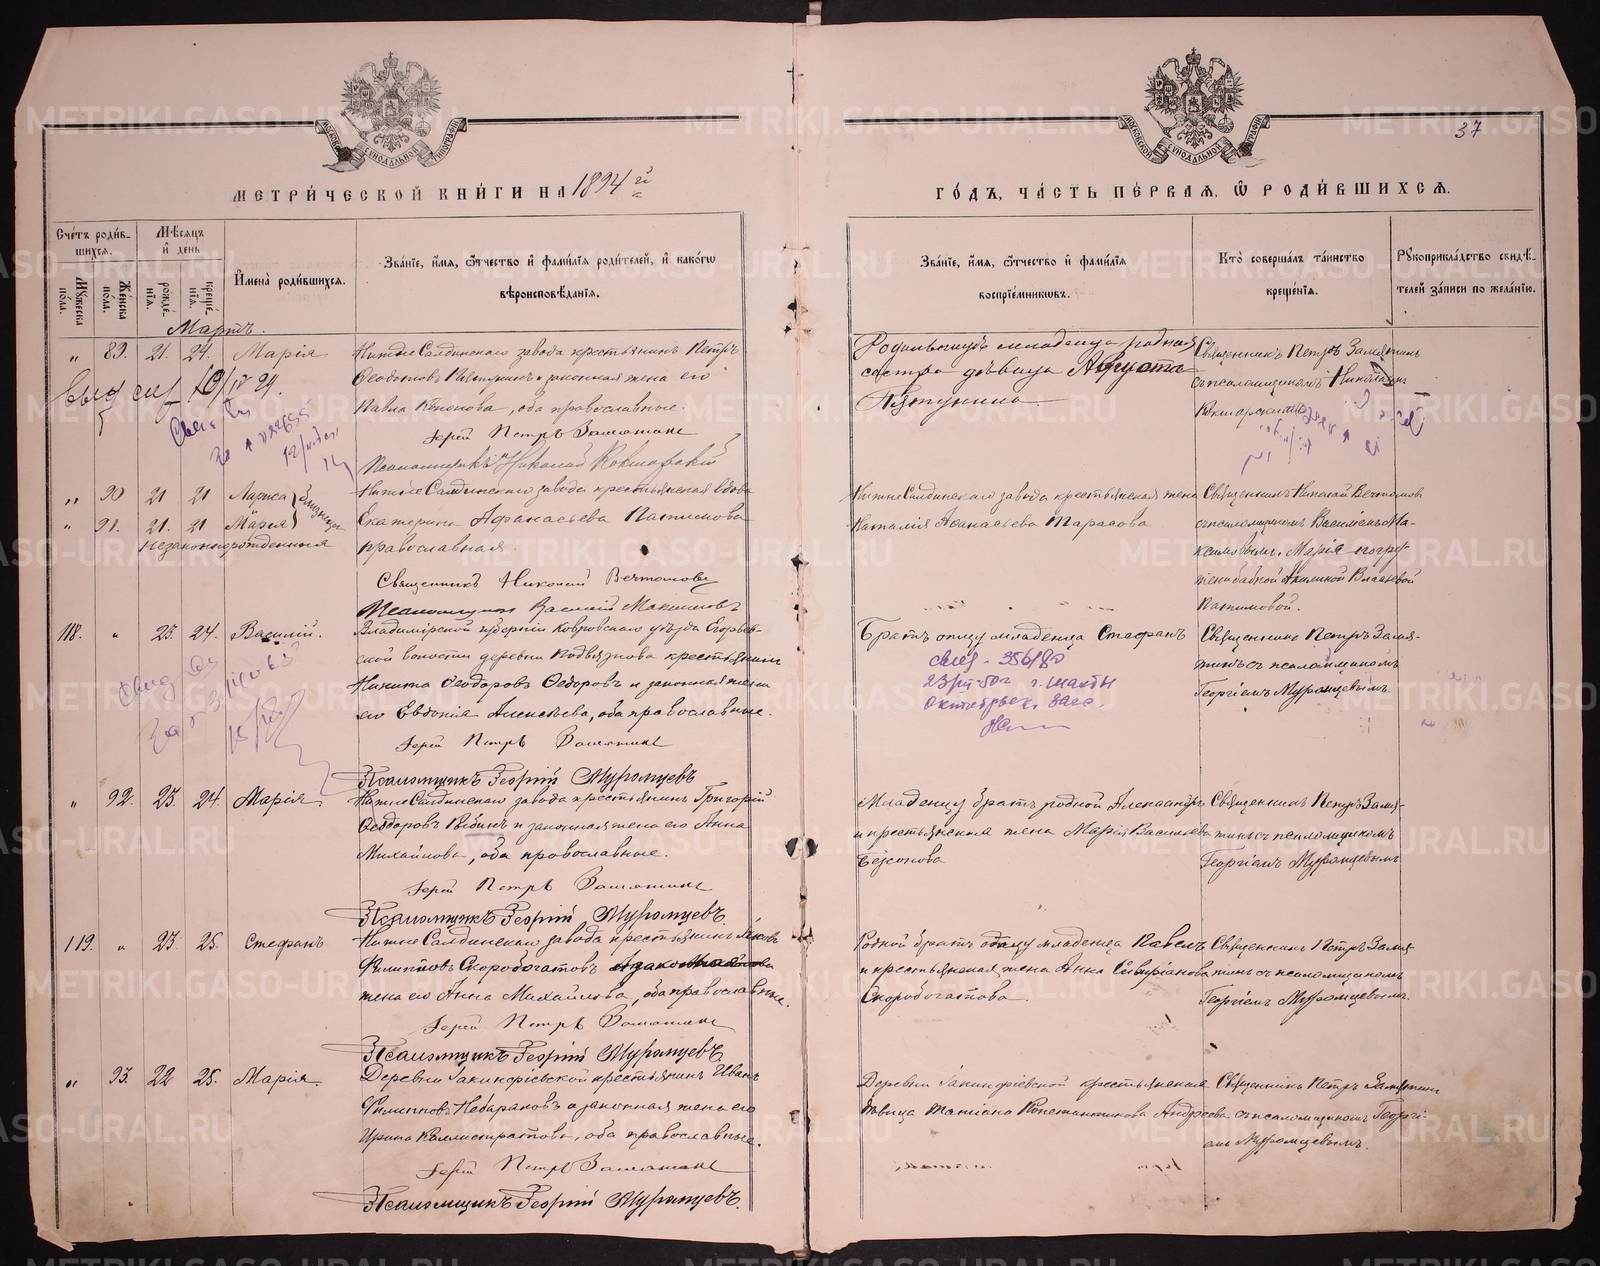 37
МЕТРИ́ЧЕСКОЙ КНИ́ГИ НА 1894 й
ГО́ДЪ, ЧА́СТЬ ПЕ́РВАЯ, Ѿ РОДИ́ВШИХСѦ.
Сче́тъ роди́в-
шихсѧ.
Мѣ́сѧцъ
и҆ де́нь
Мꙋ́жеска по́ла.
Же́нска по́ла.
рожде́-
нїѧ.
креще́-
нїѧ.
И҆мена̀ роди́вшихсѧ.
Зва́нїе, и҆́мѧ, ѻ҆́тчество и҆ фами́лїѧ роди́телей, и҆ како́гѡ
вѣроисповѣ́данїѧ.
Зва́нїе, и҆́мѧ, ѻ҆́тчество и҆ фами́лїѧ
воспрїе́мникѡвъ.
Кто̀ соверша́лъ та́инство
креще́нїѧ.
Рꙋкоприкла́дство свидѣ́-
телей за́писи по жела́нїю.
Мартъ.
" 89. 21. 24. Марія
Нижне Салдинскаго завода крестьянинъ Петръ
Ѳеодотовъ Пятунинъ и законная жена его
Павла Кононова, оба православные.
Іерей Петръ Замятинъ
Псаломщикъ Николай Кокшарскій
Родильницѣ младенца родная
сестра дѣвица Августа
Пятунина
Священникъ Петръ Замятинъ
съ псаломщикомъ Николаемъ
Кокшарскимъ
" 90 21 21 Лариса
" 91. 21. 21 Марія
близнецы
незаконнорожденныя
Нижне Салдинскаго завода крестьянская вдова
Екатерина Афанасьева Патимова
православная.
Священникъ Николай Вечтомовъ
Псаломщикъ Василій Максимовъ
Нижне Салдинскаго завода крестьянская жена
Наталія Аѳанасьева Тарасова
Священникъ Николай Вечтомовъ
съ псаломщикомъ Василіемъ Ма-
ксимовымъ, Марія погру-
жена бабкой Акилиной Власьевой
Патимовой.
118. " 23. 24. Василій.
Владимірской губерніи Ковровскаго уѣзда Егорьев-
ской волости деревни Подвязнова крестьянинъ
Никита Ѳеодоровъ Ѳедоровъ и законная жена
его Евдокія Алексѣева, оба православные.
Іерей Петръ Замятинъ
Псаломщикъ Георгій Муромцевъ
Братъ отцу младенца Стефанъ
свид - 356/80
23/VII-50г г. Шахты
Октябрьск. Загс.
Священникъ Петръ Замя-
тинъ съ псаломщикомъ
Георгіемъ Муромцевымъ
" 92. 23. 24 Марія
Нижне Салдинскаго завода крестьянинъ Григорій
Ѳеодоровъ Рябинъ и законная жена его Анна
Михайлова, оба православные.
Іерей Петръ Замятинъ
Псаломщикъ Георгій Муромцевъ.
Младенцу братъ родной Александръ
и крестьянская жена Марія Васильева
Безсонова
Священникъ Петръ Замя-
тинъ съ псаломщикомъ
Георгіемъ Муромцевымъ
119. " 23 25. Стефанъ
Нижне Салдинскаго завода крестьянинъ Яковъ
Филипповъ Скоробогатовъ
жена его Анна Михайлова, оба православные.
Іерей Петръ Замятинъ
Псаломщикъ Георгій Муромцевъ.
Родной братъ отцу младенца Павелъ
и крестьянская жена Анна
Скоробогатова.
Священникъ Петръ Замя-
тинъ съ псаломщикомъ
Георгіемъ Муромцевымъ.
" 93. 22 25. Марія.
Деревни Іакинфіевской крестьянинъ Иванъ
Филипповъ Небараковъ и законная жена его
Ирина Каллистратова, оба православные.
Іерей Петръ Замятинъ
Псаломщикъ Георгій Муромцевъ.
Деревни Іакинфіевской крестьянская
дѣвица Татіана Константинова Андреева
Священникъ Петръ Замятинъ
съ псаломщикомъ Георгі-
емъ Муромцевымъ.
METRIKI.GASO-URAL.RU